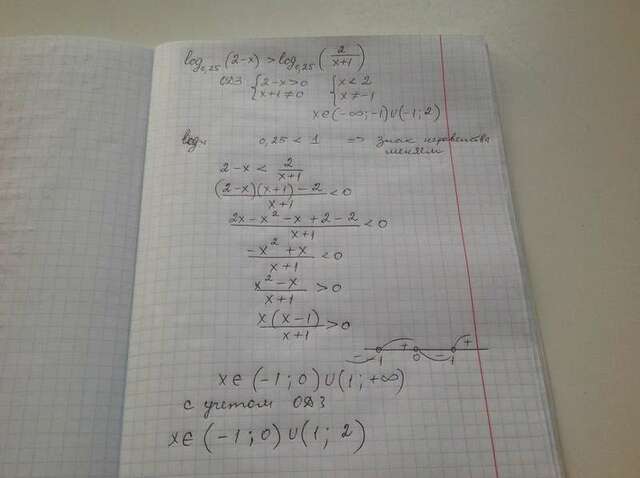 log₀,₂₅ (2-x) > log₀,₂₅ (2/(x+1))
ОДЗ { 2-x>0 { x<2
{ x+1≠0 { x≠-1
x∈(-∞;-1)∪(-1;2)
0,25 < 1 => Знак неравенства
меняем
2-x < 2/(x+1)
((2-x)(x+1)-2)/(x+1) < 0
(2x-x²-x+2-2)/(x+1) < 0
(-x²+x)/(x+1) < 0
(x²-x)/(x+1) > 0
(x(x-1))/(x+1) > 0
- + - +
-1 0 1
x∈(-1;0)∪(1;+∞)
с учетом ОДЗ
x∈(-1;0)∪(1;2)